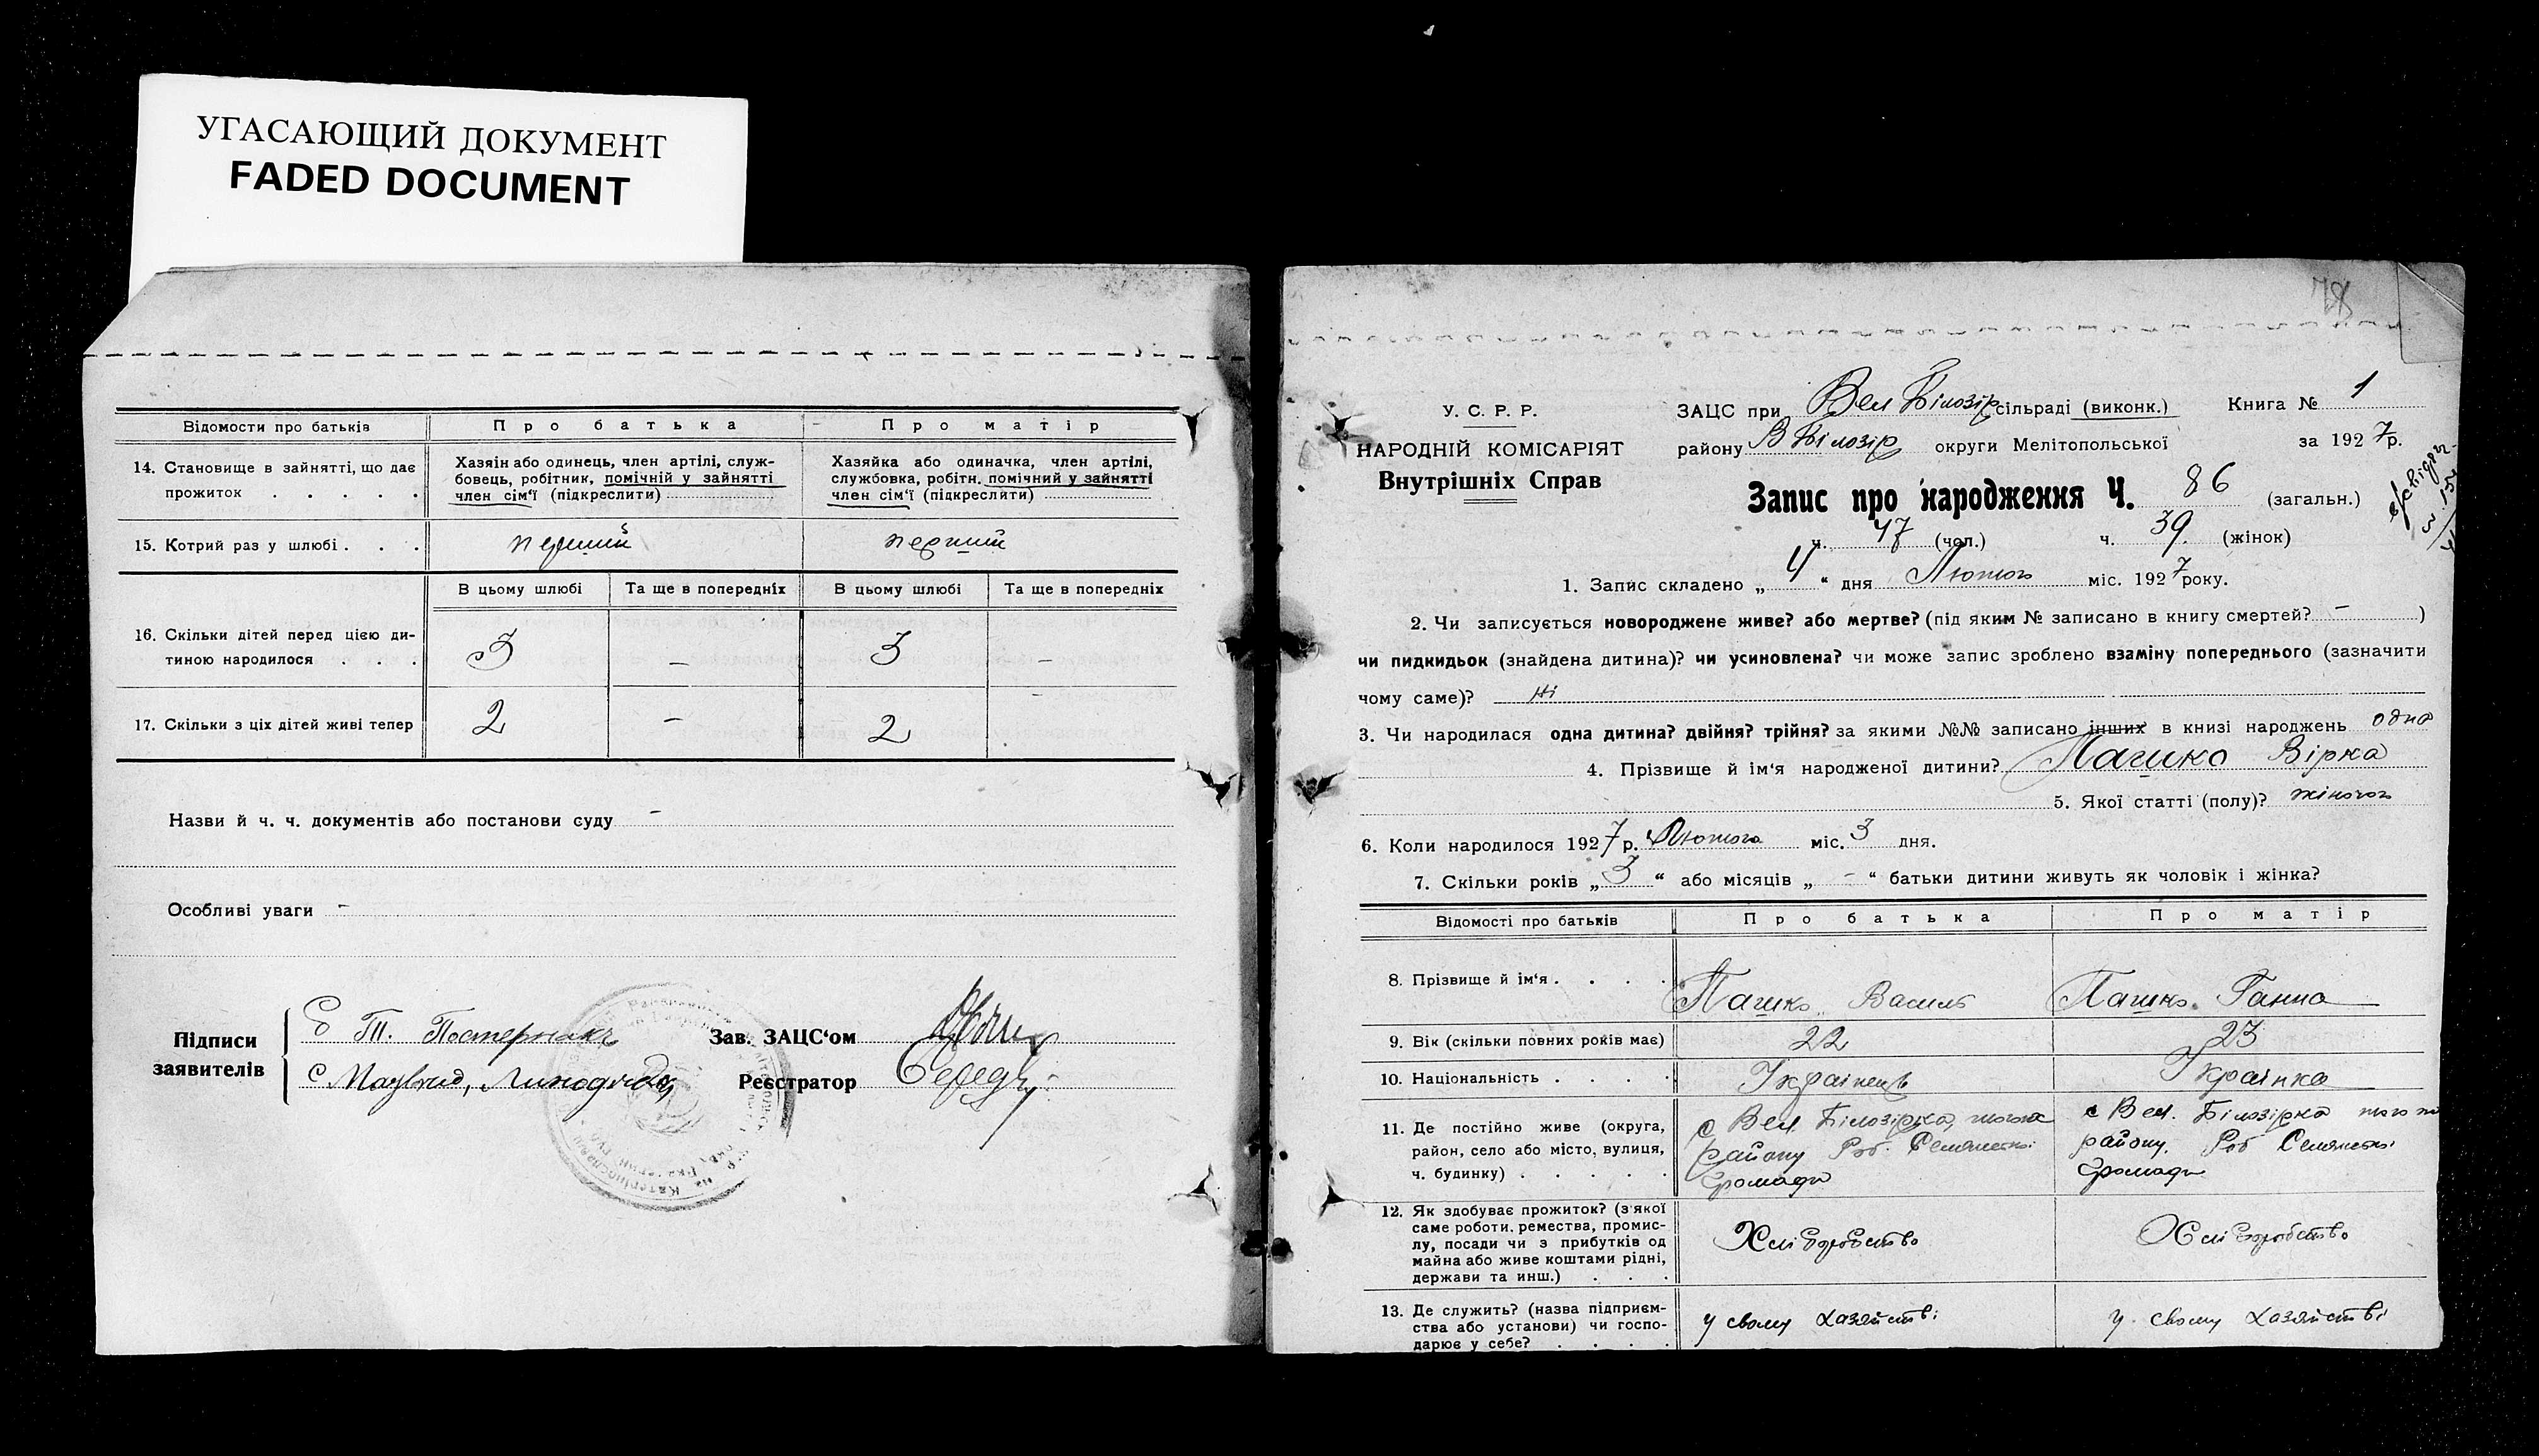 УГАСАЮЩИЙ ДОКУМЕНТ
FADED DOCUMENT
Відомости про батьків
Про батька
Про матір
14. Становище в зайнятті, що дає прожиток . . . . .
Хазяін або одинець, член артілі, служ-
бовець, робітник, помічній у зайнятті
член сім'ї (підкреслити)
Хазяйка або одиначка, член артілі,
службовка, робітн. помічний у зайнятті
член сім'ї (підкреслити)
15. Котрий раз у шлюбі . . .
перший
перший
В цьому шлюбі
Та ще в попередніх
В цьому шлюбі
Та ще в попередніх
16. Скільки дітей перед цією ди-
тиною народилося . . .
3 – 3 –
17. Скільки з ціх дітей живі тепер
2 – 2 –
Назви й ч. ч. документів або постанови суду –
Особливі уваги –
Підписи
заявителів
Зав. ЗАЦС'ом
Реєстратор
78
У. С. Р. Р.
НАРОДНІЙ КОМІСАРІЯТ
Внутрішніх Справ
ЗАЦС при Вел Білозір сільраді (виконк.) Книга № 1
району В Білозір округи Мелітопольської за 1927р.
Запис про народження Ч. 86 (загальн.)
ч. 47 (чол.) ч. 39. (жінок)
1. Запис складено „ 4 “ дня Лютого міс. 1927 року.
2. Чи записується новороджене живе? або мертве? (під яким № записано в книгу смертей? – )
чи пидкидьок (знайдена дитина)? чи усиновлена? чи може запис зроблено взаміну попереднього (зазначити
чому саме)? ні
3. Чи народилася одна дитина? двійня? трійня? за якими №№ записано інших в книзі народжень одна
4. Прізвище й ім'я народженої дитини? Пашко Вірка
5. Якої статті (полу)? жіночої
6. Коли народилося 1927 р. Лютого міс. 3 дня.
7. Скільки років „ 3 “ або місяців „ – “ батьки дитини живуть як чоловік і жінка?
Відомості про батьків
Про батька
Про матір
8. Прізвище й ім'я . . . .
Пашко Василь
Пашко Ганна
9. Вік (скільки повних років має)
22
23
10. Національність . . . .
Українець
Українка
11. Де постійно живе (округа,
район, село або місто, вулиця,
ч. будинку) . . . . .
с Вел. Білозірка,
району Роб. Селянської
Громади
с Вел. Білозірка
району. Роб Селянської
Громади
12. Як здобуває прожиток? (з якої
саме роботи, ремества, промис-
лу, посади чи з прибутків од
майна або живе коштами рідні,
держави та инш.) . . .
Хліборобство
Хліборобство
13. Де служить? (назва підприєм-
ства або установи) чи госпо-
дарює у себе? . . . .
у свому хазяйстві
у свому хазяйстві